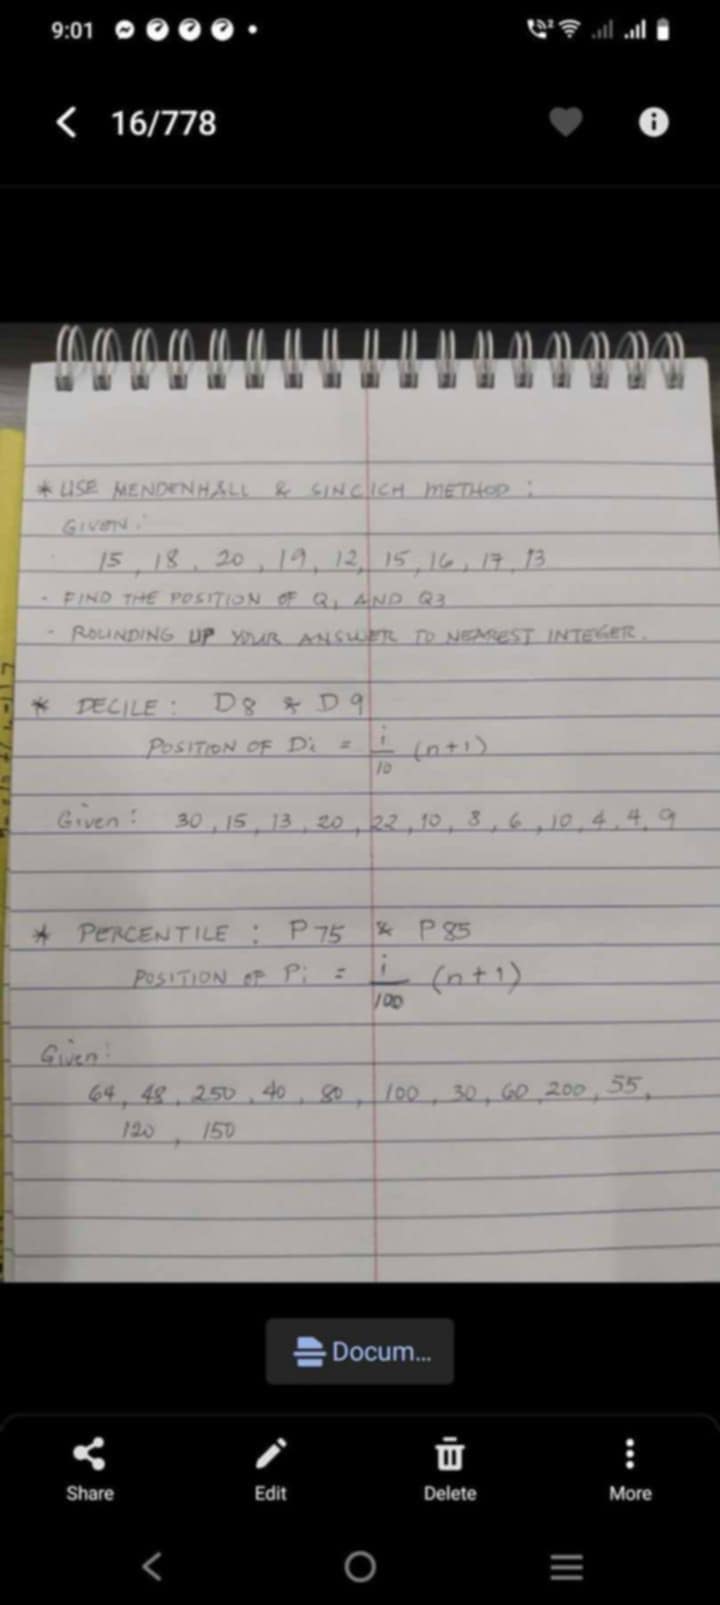 9:01
16/778
* USE MENDENHALL & SINCICH METHOD :
GIVEN:
15, 18, 20, 19, 12, 15, 16, 17, 13
- FIND THE POSITION OF Q1 AND Q3
- ROUNDING UP YOUR ANSWER TO NEAREST INTEGER.
* DECILE : D8 & D9
POSITION OF Di = i/10 (n+1)
Given: 30, 15, 13, 20, 22, 10, 8, 6, 10, 4, 4, 9
* PERCENTILE : P75 & P85
POSITION OF Pi = i/100 (n+1)
Given:
64, 48, 250, 40, 80, 100, 30, 60, 200, 55,
120, 150
Docum...
Share Edit Delete More